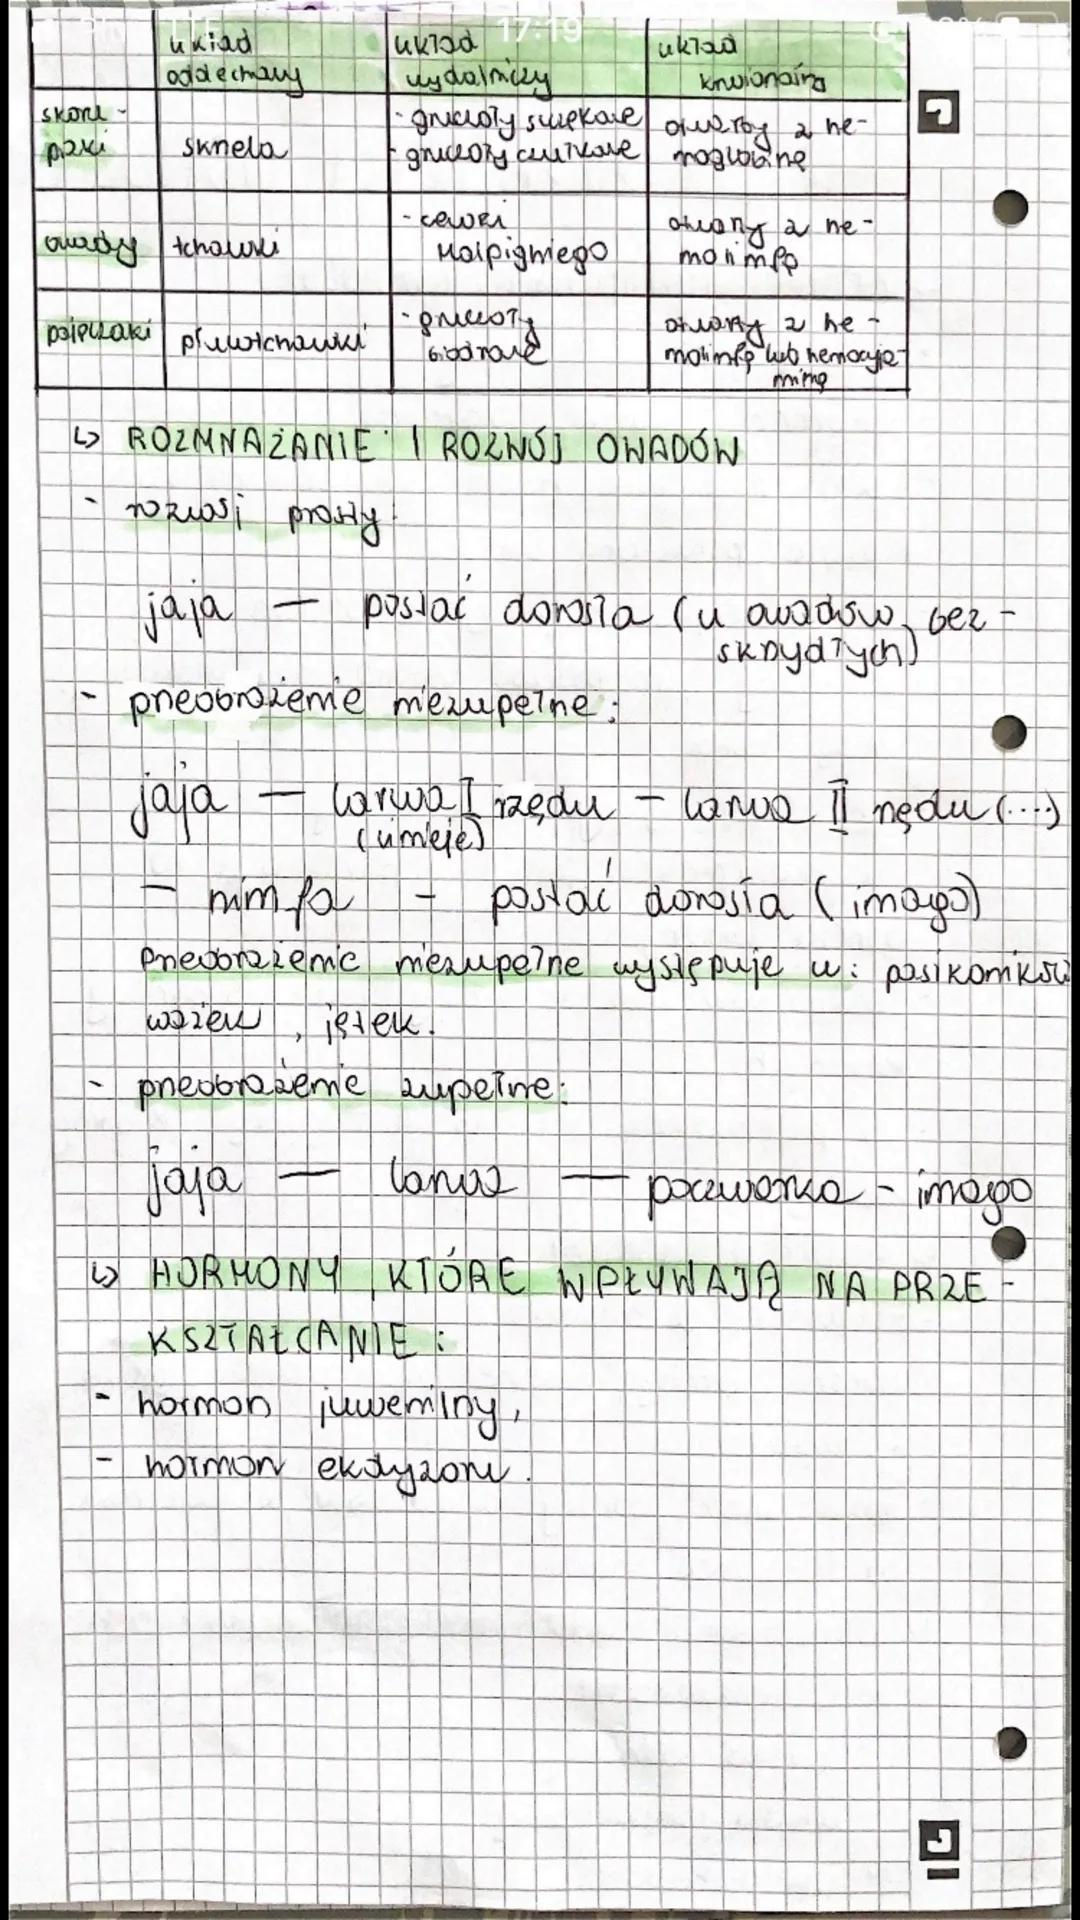 17:19
układ oddechowy
układ wydalniczy
układ krwionośny
skoru-
piaki
skrzela
- gruczoły szczękowe
- gruczoły czułkowe
otwarty z he-
moglobiną
owady
tchawki
- cewki
Malpighiego
otwarty z he-
molimfą
pajęczaki
płucotchawki
- gruczoły
biodrowe
otwarty z he-
molimfą lub hemocyja-
niną
↳ ROZMNAŻANIE I ROZWÓJ OWADÓW
- rozwój prosty:
jaja — postać dorosła (u owadów bez-
skrzydłych)
- przeobrażenie niezupełne:
jaja — larwa I rzędu - larwa II rzędu (....)
(linieje)
— nimfa - postać dorosła (imago)
Przeobrażenie niezupełne występuje u: pasikoników
ważek, jętek.
- przeobrażenie zupełne:
jaja — larwa — poczwarka - imago
↳ HORMONY, KTÓRE WPŁYWAJĄ NA PRZE-
KSZTAŁCANIE:
- hormon juwenilny,
- hormon ekdyzon.